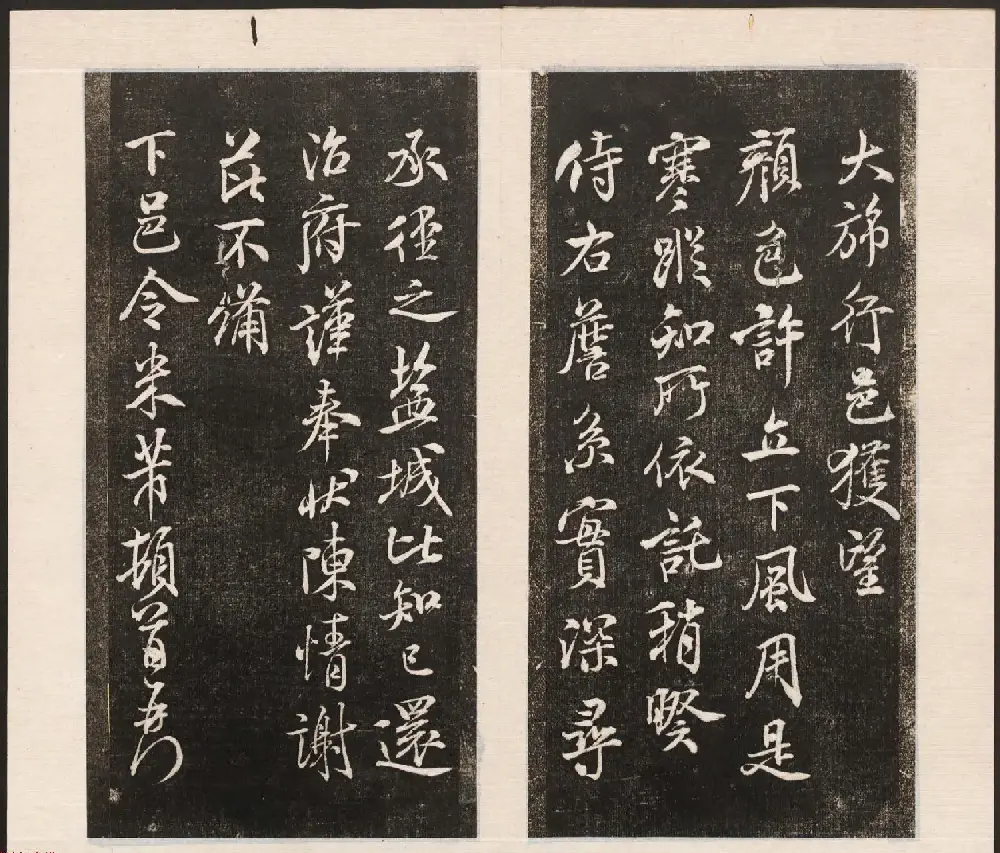 大旆行邑獲望
顏色許立下風用是
寒蹤知所依託稍睽
侍右詹系實深尋
承徑之盐城比知已還
治府謹奉狀陳情謝
茲不備
下邑令米芾頓首再